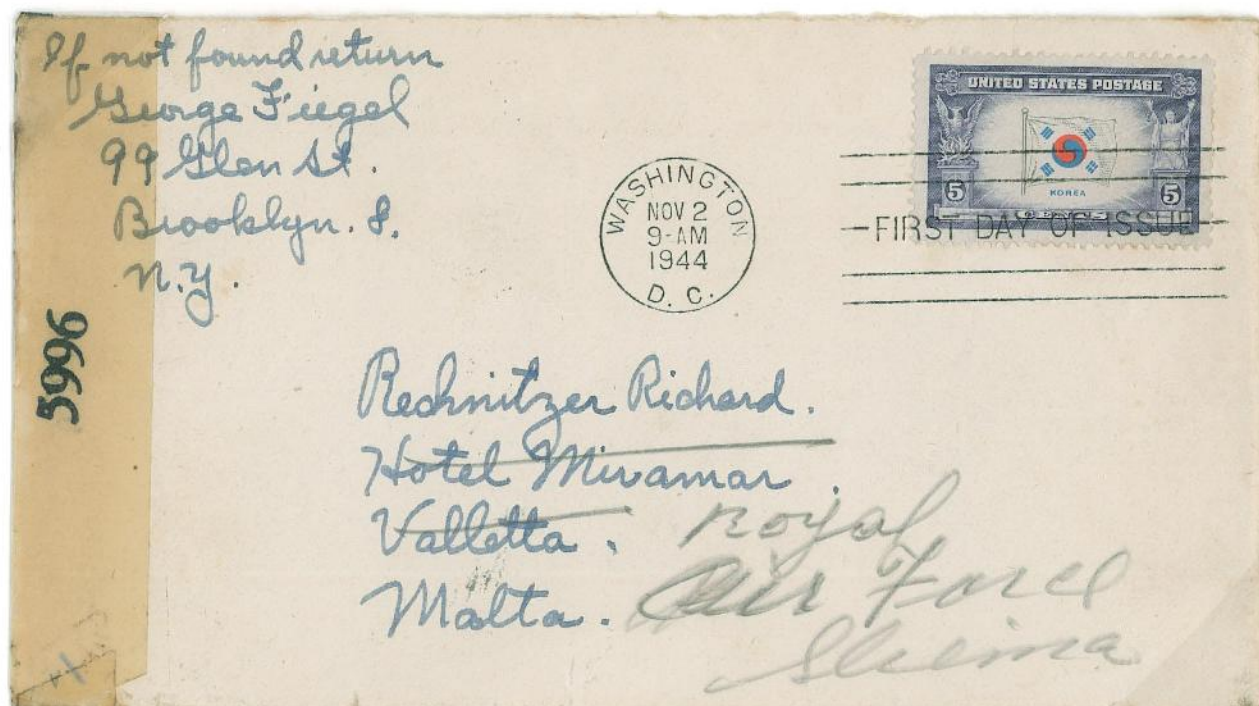 If not found return
George Fiegel
99 Glen St.
Brooklyn. 8.
N.Y.
5996
WASHINGTON
NOV 2
9-AM
1944
D. C.
UNITED STATES POSTAGE
KOREA
5 5
CENTS
FIRST DAY OF ISSUE
Rechnitzer Richard.
Hotel Miramar.
Valletta.
Malta.
Royal
Air Force
Sliema